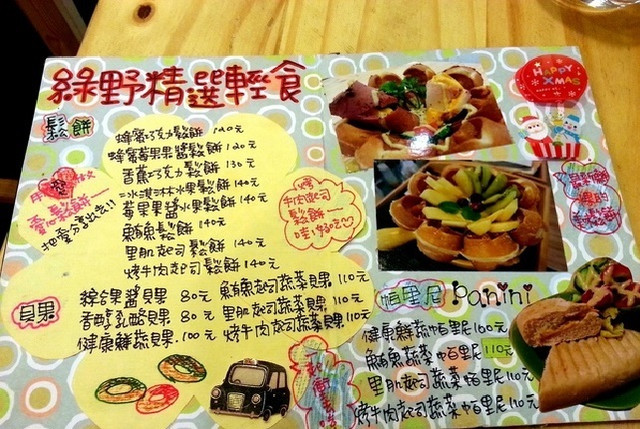 綠野精選輕食
HAPPY
XMAS
鬆餅
蜂蜜巧克力鬆餅 140元
蜂蜜莓果果醬鬆餅 120元
香蕉巧克力鬆餅 130元
冰淇林水果鬆餅 140元
莓果果醬水果鬆餅 140元
鮪魚鬆餅 140元
里肌起司鬆餅 140元
烤牛肉起司鬆餅 140元
愛心鬆餅
把愛分享出去!!
烤
牛肉起司
鬆餅
哇!好吃
貝果
綜合果醬貝果 80元
香醇乳酪貝果 80元
健康鮮蔬貝果 100元
鮪魚起司蔬菜貝果 110元
里肌起司蔬菜貝果 110元
烤牛肉起司蔬菜貝果 110元
帕里尼 Panini
健康鮮蔬帕里尼 100元
鮪魚蔬菜帕里尼 110元
里肌起司蔬菜帕里尼 110元
烤牛肉起司蔬菜帕里尼 110元